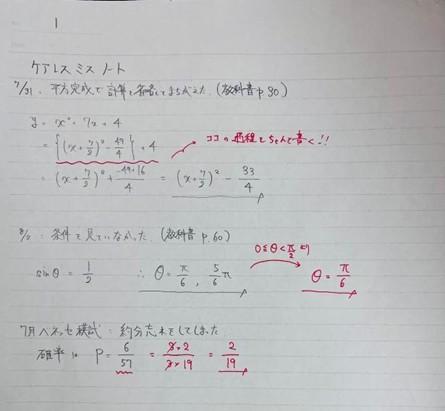 1
ケアレス ミス ノート
7/31 : 平方完成で 計算を省略してまちがえた. (教科書 p.90)
y = x² + 7x + 4
= {(x + 7/2)² - 49/4} + 4 ココの過程をちゃんと書く!!
= (x + 7/2)² + -49+16/4 = (x + 7/2)² - 33/4
8/2 : 条件を見ていなかった. (教科書 p.60)
sinθ = 1/2 ∴ θ = π/6 , 5/6 π 0≦θ<π/2 より θ = π/6
7月ベネッセ模試 : 約分忘れをしてしまった
確率は P = 6/57 = 3×2/3×19 = 2/19